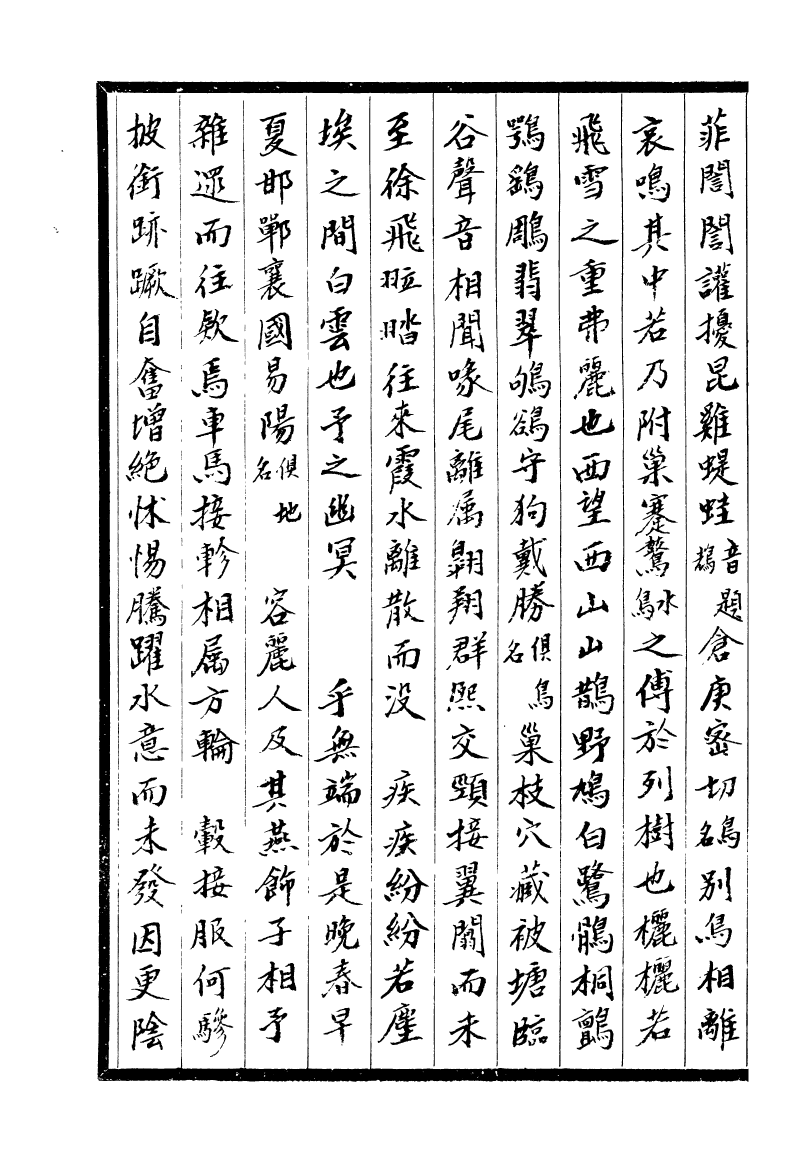 菲誾誾讙擾昆雞蝭蛙音題鵝倉庚密切鳥名別鳥相離
哀鳴其中若乃附巢蹇鷔水鳥之傅於列樹也欐欐若
飛雪之重弗麗也西望西山山鵲野鳩白鷺鶻桐鸇
鶚鷂鵰翡翠鴝鵒守狗戴勝俱鳥名巢枝穴藏被塘臨
谷聲音相聞喙尾離屬翱翔群熙交頸接翼闒而未
至徐飛翋㬼往來霞水離散而没 疾疾紛紛若塵
埃之間白雲也予之幽冥 乎無端於是晚春早
夏邯鄲襄國易陽俱地名 容麗人及其燕飾子相予
雜遝而往欵焉車馬接軫相屬方輪 轂接服何驂
披銜跡蹶自奮增絶怵惕騰躍水意而未發因更陰